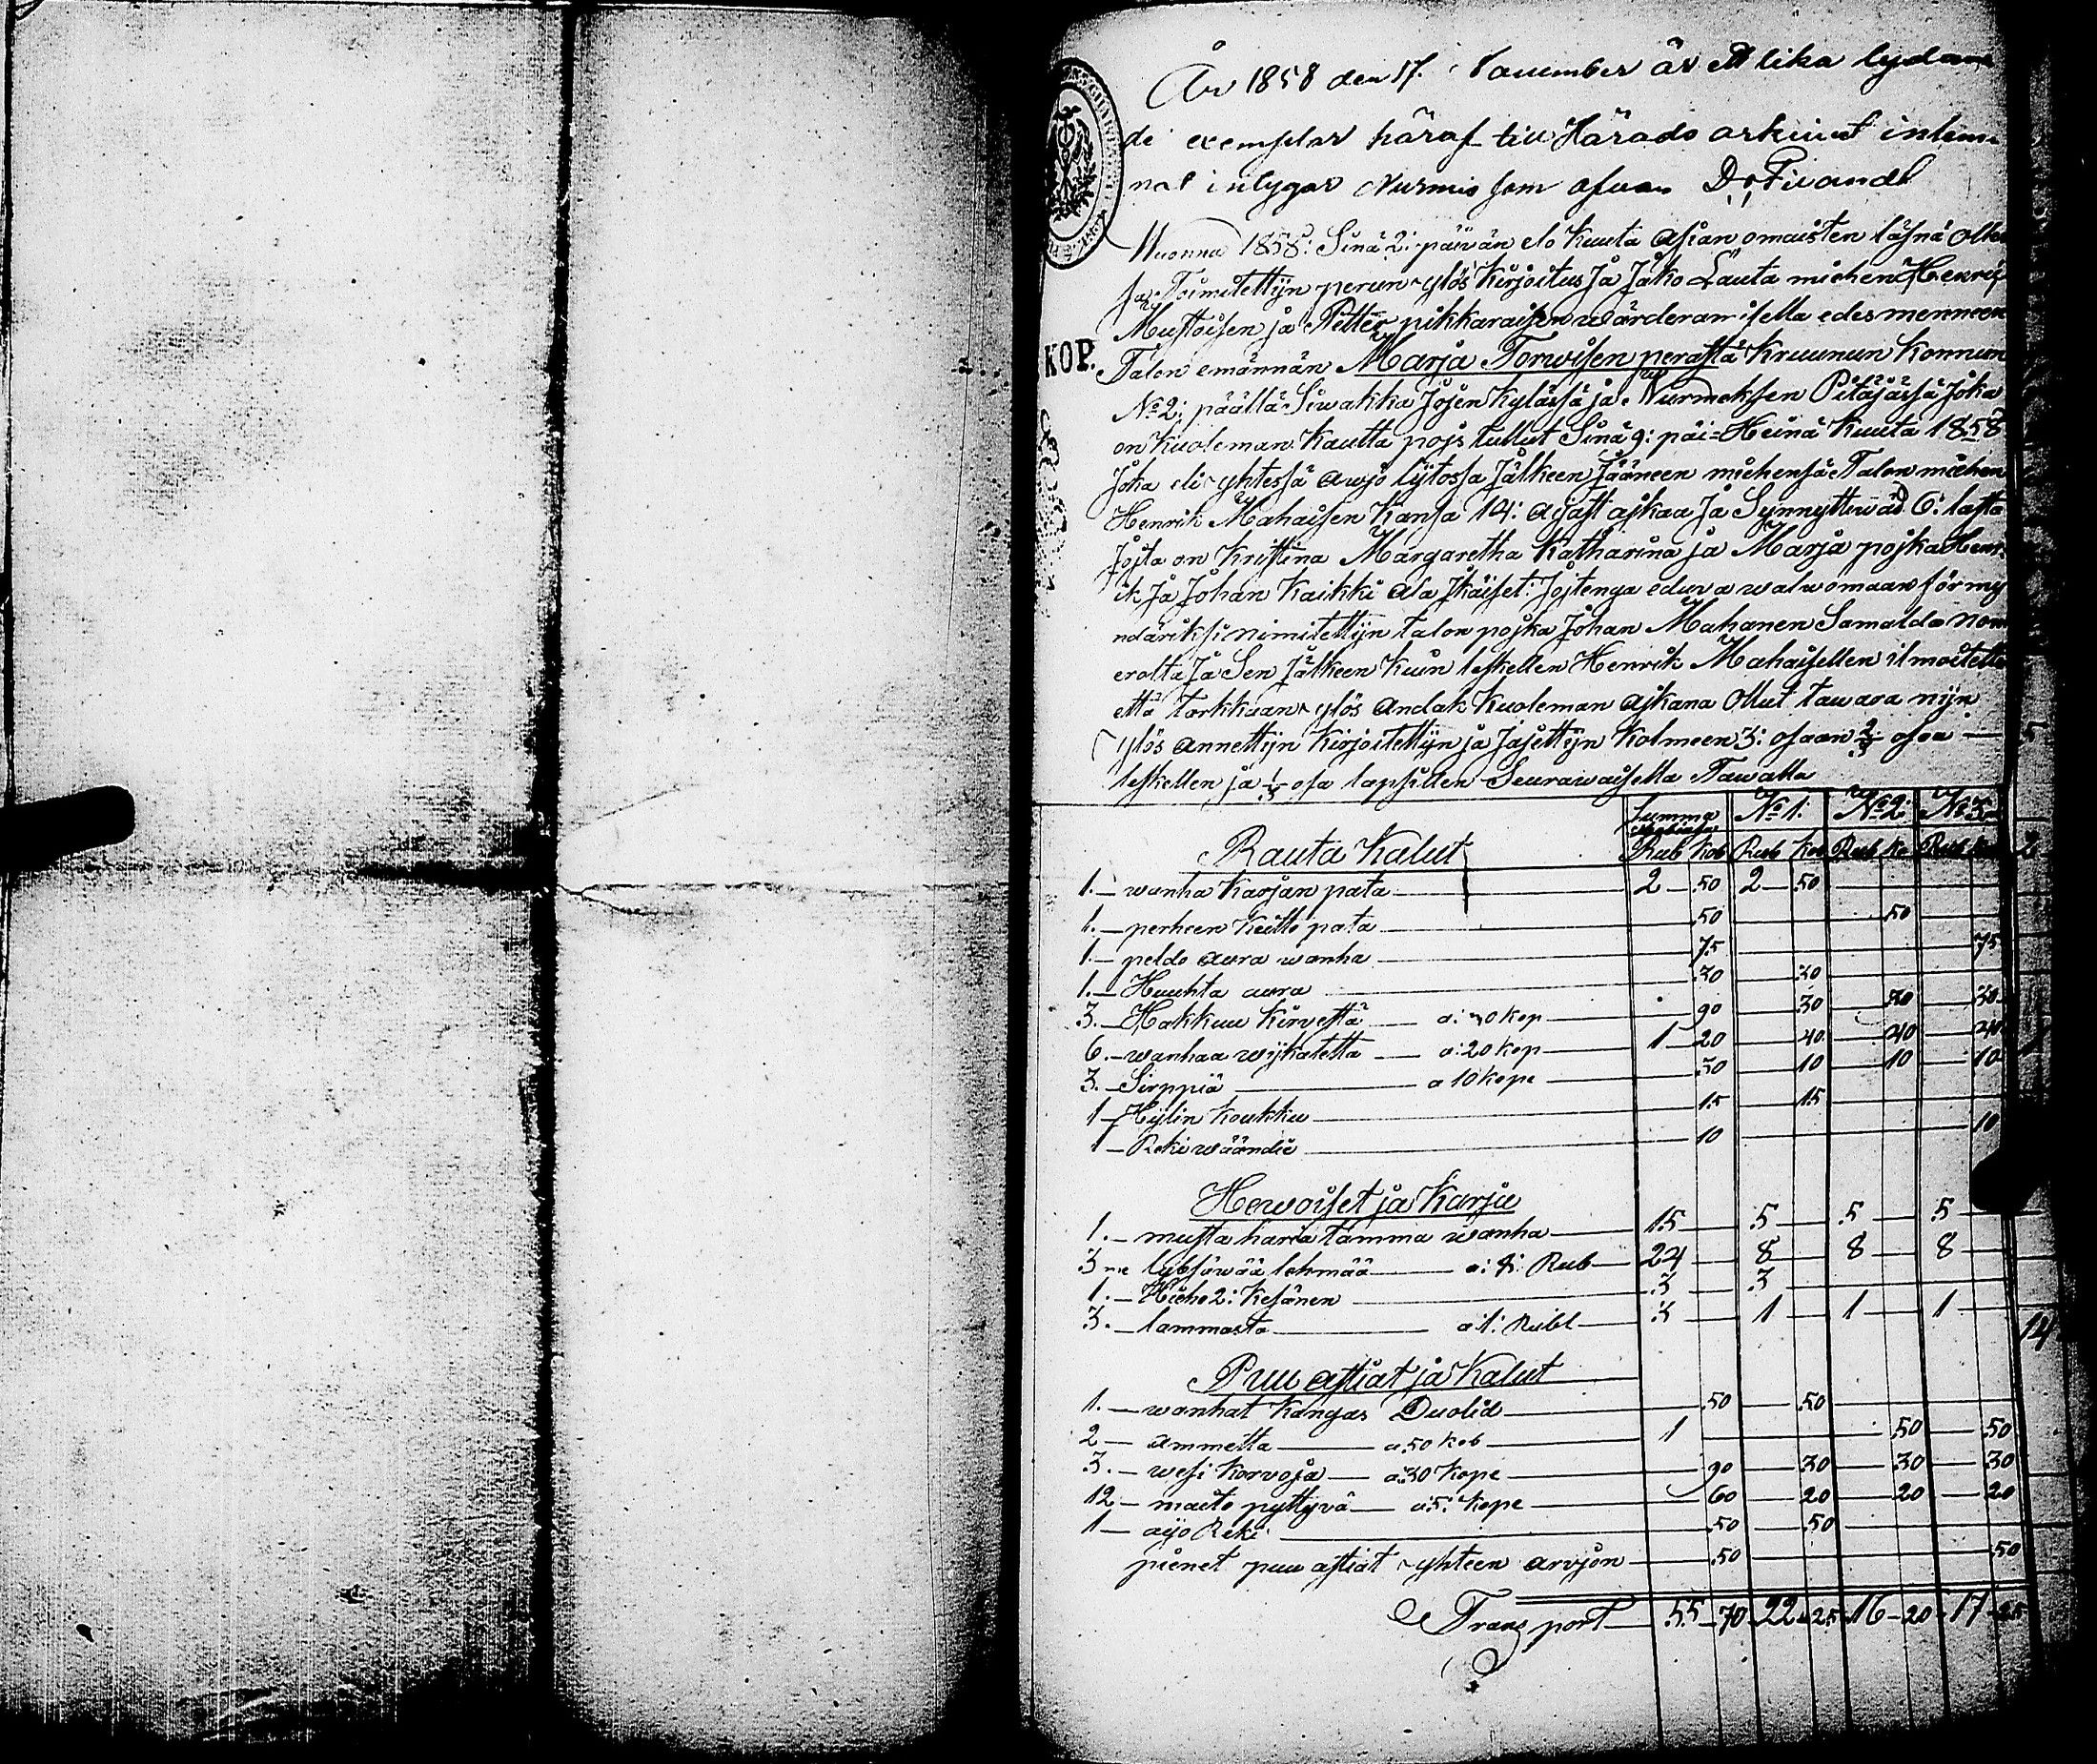 År 1858 den 17. November är ett lika lydan
de exemplar häraf till Härads arkivet inlem
nat intygar Nurmis som ofvan
KOP.
Wuonna 1858: Sinä 2: päiwän elo Kuuta Asian omaisten läsnä olle
sa Toimitettijn perun ylös Kirjoitus Ja Jako Lauta miehen Henrik
Mustoisen ja Petter pikkaraisen wärderamisella edes menneen
Talon emännän Marja Torwisen perästä Kruunun Konnun
No 2: päällä Siwakka Jojen Kylässä ja Nurmeksen Pitäjässä Joka
on Kuoleman Kautta pojs tullut Sinä 9: päi= Heinä Kuuta 1858
Joka eli yhtessä awjo lijtossa Jälkeen Jääneen miehensä Talon miehen
Henrik Mahaisen Kansa 14: ajast ajkaa Ja Synnyttiwäd 6: lasta
Josta on Kristina Margaretha Katharina ja Marja pojka Hen
ik Ja Johan Kaikki ala Jkäiset: Jojtenga edua walwomaan förmy
ndäriksi nimitettijn talon pojka Johan Mahanen Samalda nom
erolta Ja Sen Jälkeen Kuin leskellen Henrik Mahaisellen ilmoitett
että tarkkaan ylös andak Kuoleman ajkana Ollut tawara nijn
ylös annettijn Kirjoitettijn ja Jajettijn Kolmeen 3: osaan 2/3 osaa —
leskellen ja 1/3 osa lapsillen Seurawaisella Tawalla
Summa No 1: No 2: No 3:
Rauta Kalut Rub Kob Rub Kob Rub Ko Rubl
1. — wanha Karjan pata — 2 — 50 2 — 50
1. — perheen Keitto pata — 50 50
1. — peldo aura wanha — 75 75
1. — Huuhta aura — 30 30
3. — Hakkuu Kirvestä — a: 30 kop — 90 30 30 30
6. — wanhaa wijkatetta — a: 20 kop — 1 — 20 40 40 40
3. — Sirppiä — a 10 kope — 30 10 10 10
1 — Hijlin Koukku — 15 15
1 — Reki wäändiä — 10 10
Hewoiset ja Karja
1. — musta haria tamma wanha — 15 — 5 — 5 — 5
3 — lypsäwää lehmää — a: 8: Rub — 24 — 8 8 — 8
1. — Hieho 2: Kesänen — 3 — 3
3. — lammasta — a 1: Rubl — 3 — 1 1 — 1
14
Puu astiat ja Kalut
1. — wanhat Kangas — 50 50
2 — ammetta — a 50 kob — 1 50 50
3. — wesi Korvoja — a 30 Kope — 90 30 30 30
12 — maito pyttyvä — a 5: Kope — 60 20 20 20
1 — ajo Reki — 50 50
pienet puu astiat yhteen arvjon — 50 50
Transport — 55 — 70 22 — 25 16 — 20 17 — 25